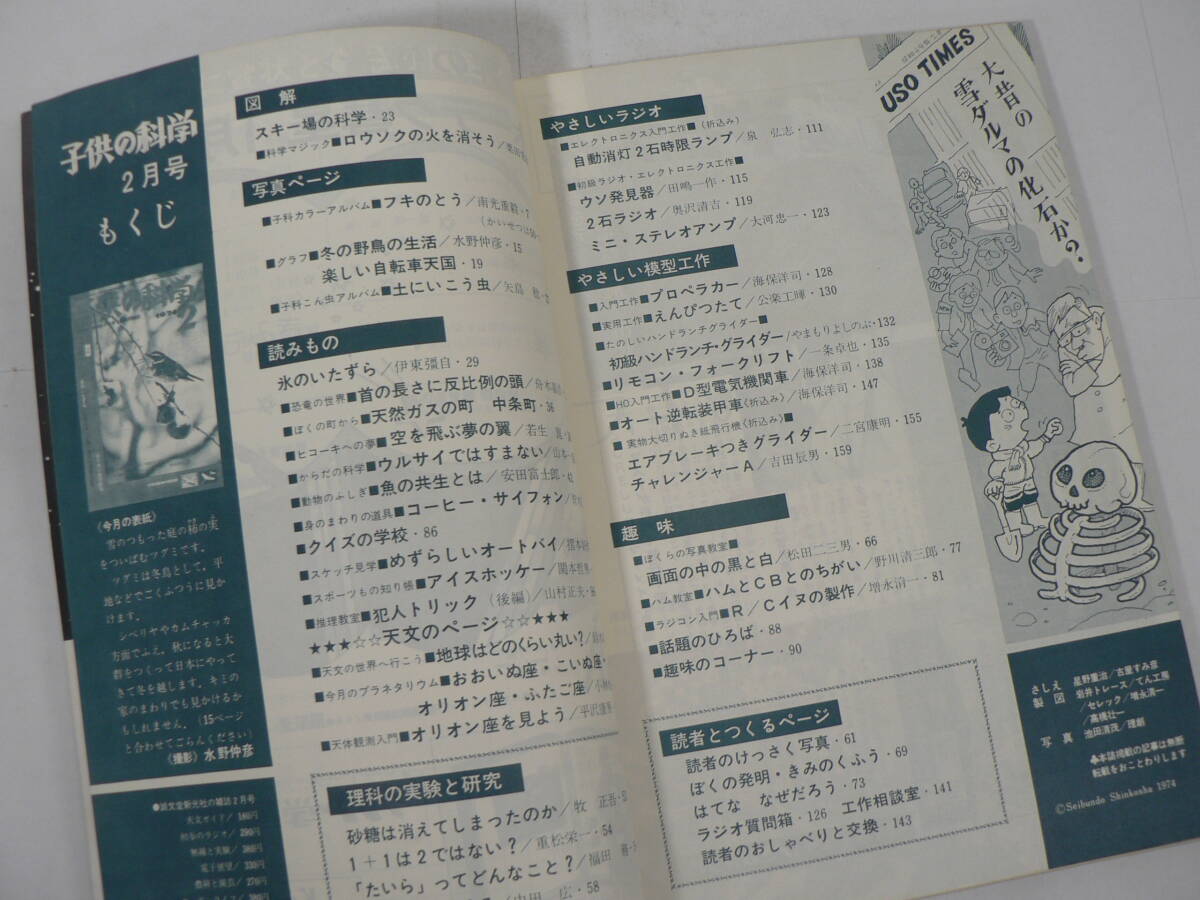 子供の科学
2月号
もくじ
子供の科学
2
《今月の表紙》
雪のつもった庭の柿の実
をついばむツグミです。
ツグミは冬鳥として、平
地などでごくふつうに見か
けます。
シベリヤやカムチャッカ
方面でふえ、秋になると大
群をつくって日本にやって
きて冬を越します。キミの
家のまわりでも見かけるか
もしれません。(15ページ
と合わせてごらんください)
(撮影)水野仲彦
●誠文堂新光社の雑誌2月号
天文ガイド/180円
初歩のラジオ/290円
無線と実験/380円
電子展望/330円
図解
スキー場の科学・23
■科学マジック■ロウソクの火を消そう/
写真ページ
■子科カラーアルバム■フキのとう/南光重毅・7
■グラフ■冬の野鳥の生活/水野仲彦・15
楽しい自転車天国・19
■子科こん虫アルバム■土にいこう虫/矢島
読みもの
氷のいたずら/伊東彊自・29
■恐竜の世界■首の長さに反比例の頭/
■ぼくの町から■天然ガスの町 中条町・36
■ヒコーキへの夢■空を飛ぶ夢の翼/若生
■からだの科学■ウルサイではすまない/山本
■動物のふしぎ■魚の共生とは/安田富士郎・42
■身のまわりの道具■コーヒー・サイフォン/
■クイズの学校・86
■スケッチ見学■めずらしいオートバイ/
■スポーツもの知り帳■アイスホッケー/関本
■推理教室■犯人トリック(後編)/山村正夫
★★★☆☆天文のページ☆☆★★★
■天文の世界へ行こう■地球はどのくらい丸い?/
■今月のプラネタリウム■おおいぬ座・こいぬ座・
オリオン座・ふたご座/
■天体観測入門■オリオン座を見よう/平沢
理科の実験と研究
砂糖は消えてしまったのか/牧 正吾
1+1は2ではない?/重松栄一・54
「たいら」ってどんなこと?/福田
広・58
やさしいラジオ
■エレクトロニクス入門工作■(折込み)
自動消灯2石時限ランプ/泉 弘志・111
■初級ラジオ・エレクトロニクス工作■
ウソ発見器/田嶋一作・115
2石ラジオ/奥沢清吉・119
ミニ・ステレオアンプ/大河忠一・123
やさしい模型工作
■入門工作■プロペラカー/海保洋司・128
■実用工作■えんぴつたて/公楽工暉・130
■たのしいハンドランチグライダー■
初級ハンドランチ・グライダー/やまもりよしのぶ・132
■リモコン・フォークリフト/一条卓也・135
■HO入門工作■D型電気機関車/海保洋司・138
■オート逆転装甲車《折込み》/海保洋司・147
■実物大切りぬき紙飛行機《折込み》■
エアブレーキつきグライダー/二宮康明・155
チャレンジャーA/吉田辰男・159
趣味
■ぼくらの写真教室■
画面の中の黒と白/松田二三男・66
■ハム教室■ハムとCBとのちがい/野川清三郎・77
■ラジコン入門■R/Cイヌの製作/増永清一・81
■話題のひろば・88
■趣味のコーナー・90
読者とつくるページ
読者のけっさく写真・61
ぼくの発明・きみのくふう・69
はてな なぜだろう・73
ラジオ質問箱・126 工作相談室・141
読者のおしゃべりと交換・143
USO TIMES
大昔の
雪ダルマの化石か?
さしえ 星野重治/古屋すみ彦
製図 岩井トレース/てん工房
/セレック/増永清一
/高橋壮一
写真 池田清茂/理創
♣本誌掲載の記事は無断
転載をおことわりします
©Seibundo Shinkosha 1974